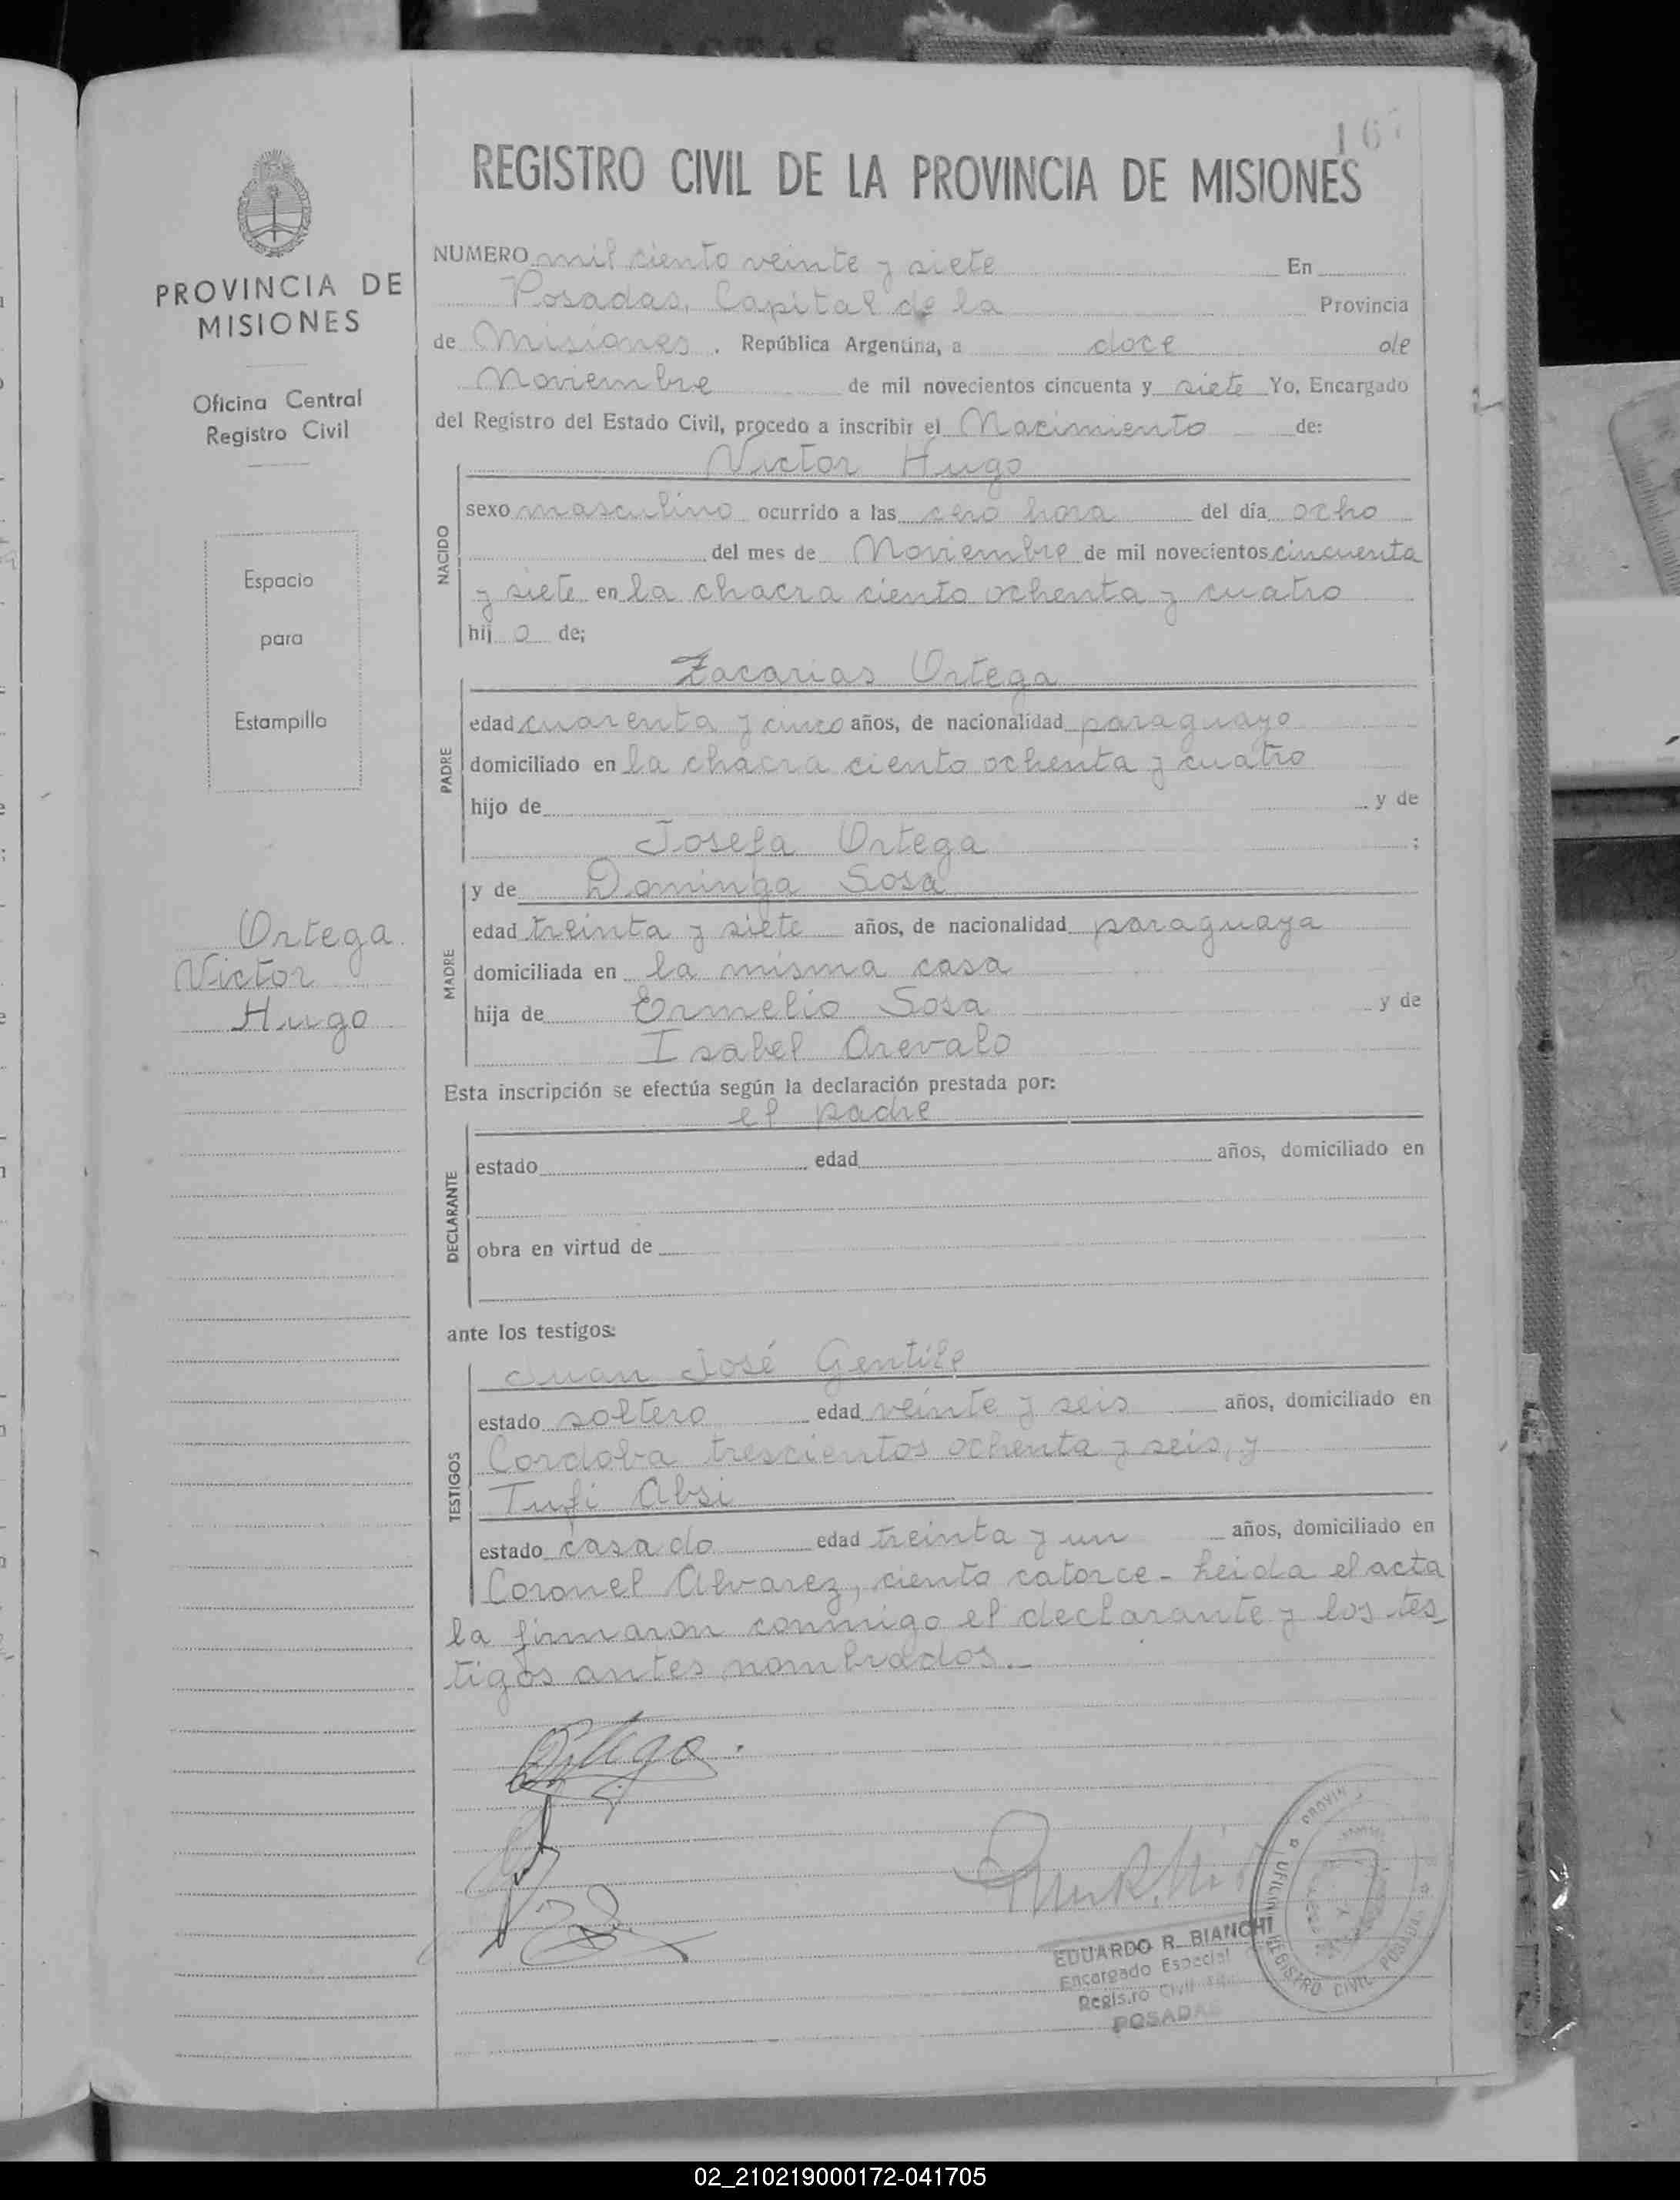 167
REGISTRO CIVIL DE LA PROVINCIA DE MISIONES
PROVINCIA DE
MISIONES
Oficina Central
Registro Civil
Espacio
para
Estampilla
Ortega
Victor
Hugo
NUMERO mil ciento veinte y siete En
Posadas, Capital de la Provincia
de Misiones, República Argentina, a doce de
Noviembre de mil novecientos cincuenta y siete Yo, Encargado
del Registro del Estado Civil, procedo a inscribir el Nacimiento de:
Victor Hugo
NACIDO
sexo masculino ocurrido a las cero hora del día ocho
del mes de Noviembre de mil novecientos cincuenta
y siete en la chacra ciento ochenta y cuatro
hij o de;
Zacarias Ortega
PADRE
edad cuarenta y cinco años, de nacionalidad paraguayo
domiciliado en la chacra ciento ochenta y cuatro
hijo de y de
Josefa Ortega ;
y de Dominga Sosa
MADRE
edad treinta y siete años, de nacionalidad paraguaya
domiciliada en la misma casa
hija de Ermelio Sosa y de
Isabel Arevalo
Esta inscripción se efectúa según la declaración prestada por:
el padre
DECLARANTE
estado edad años, domiciliado en
obra en virtud de
ante los testigos:
Juan José Gentile
TESTIGOS
estado soltero edad veinte y seis años, domiciliado en
Cordoba trescientos ochenta y seis, y
Tufi Absi
estado casado edad treinta y un años, domiciliado en
Coronel Alvarez, ciento catorce - Leida el acta
la firmaron conmigo el declarante y los tes-
tigos antes nombrados.-
Ortega
EDUARDO R. BIANCHI
Encargado Especial
Registro Civil
POSADAS
REGISTRO CIVIL POSADAS
02_210219000172-041705